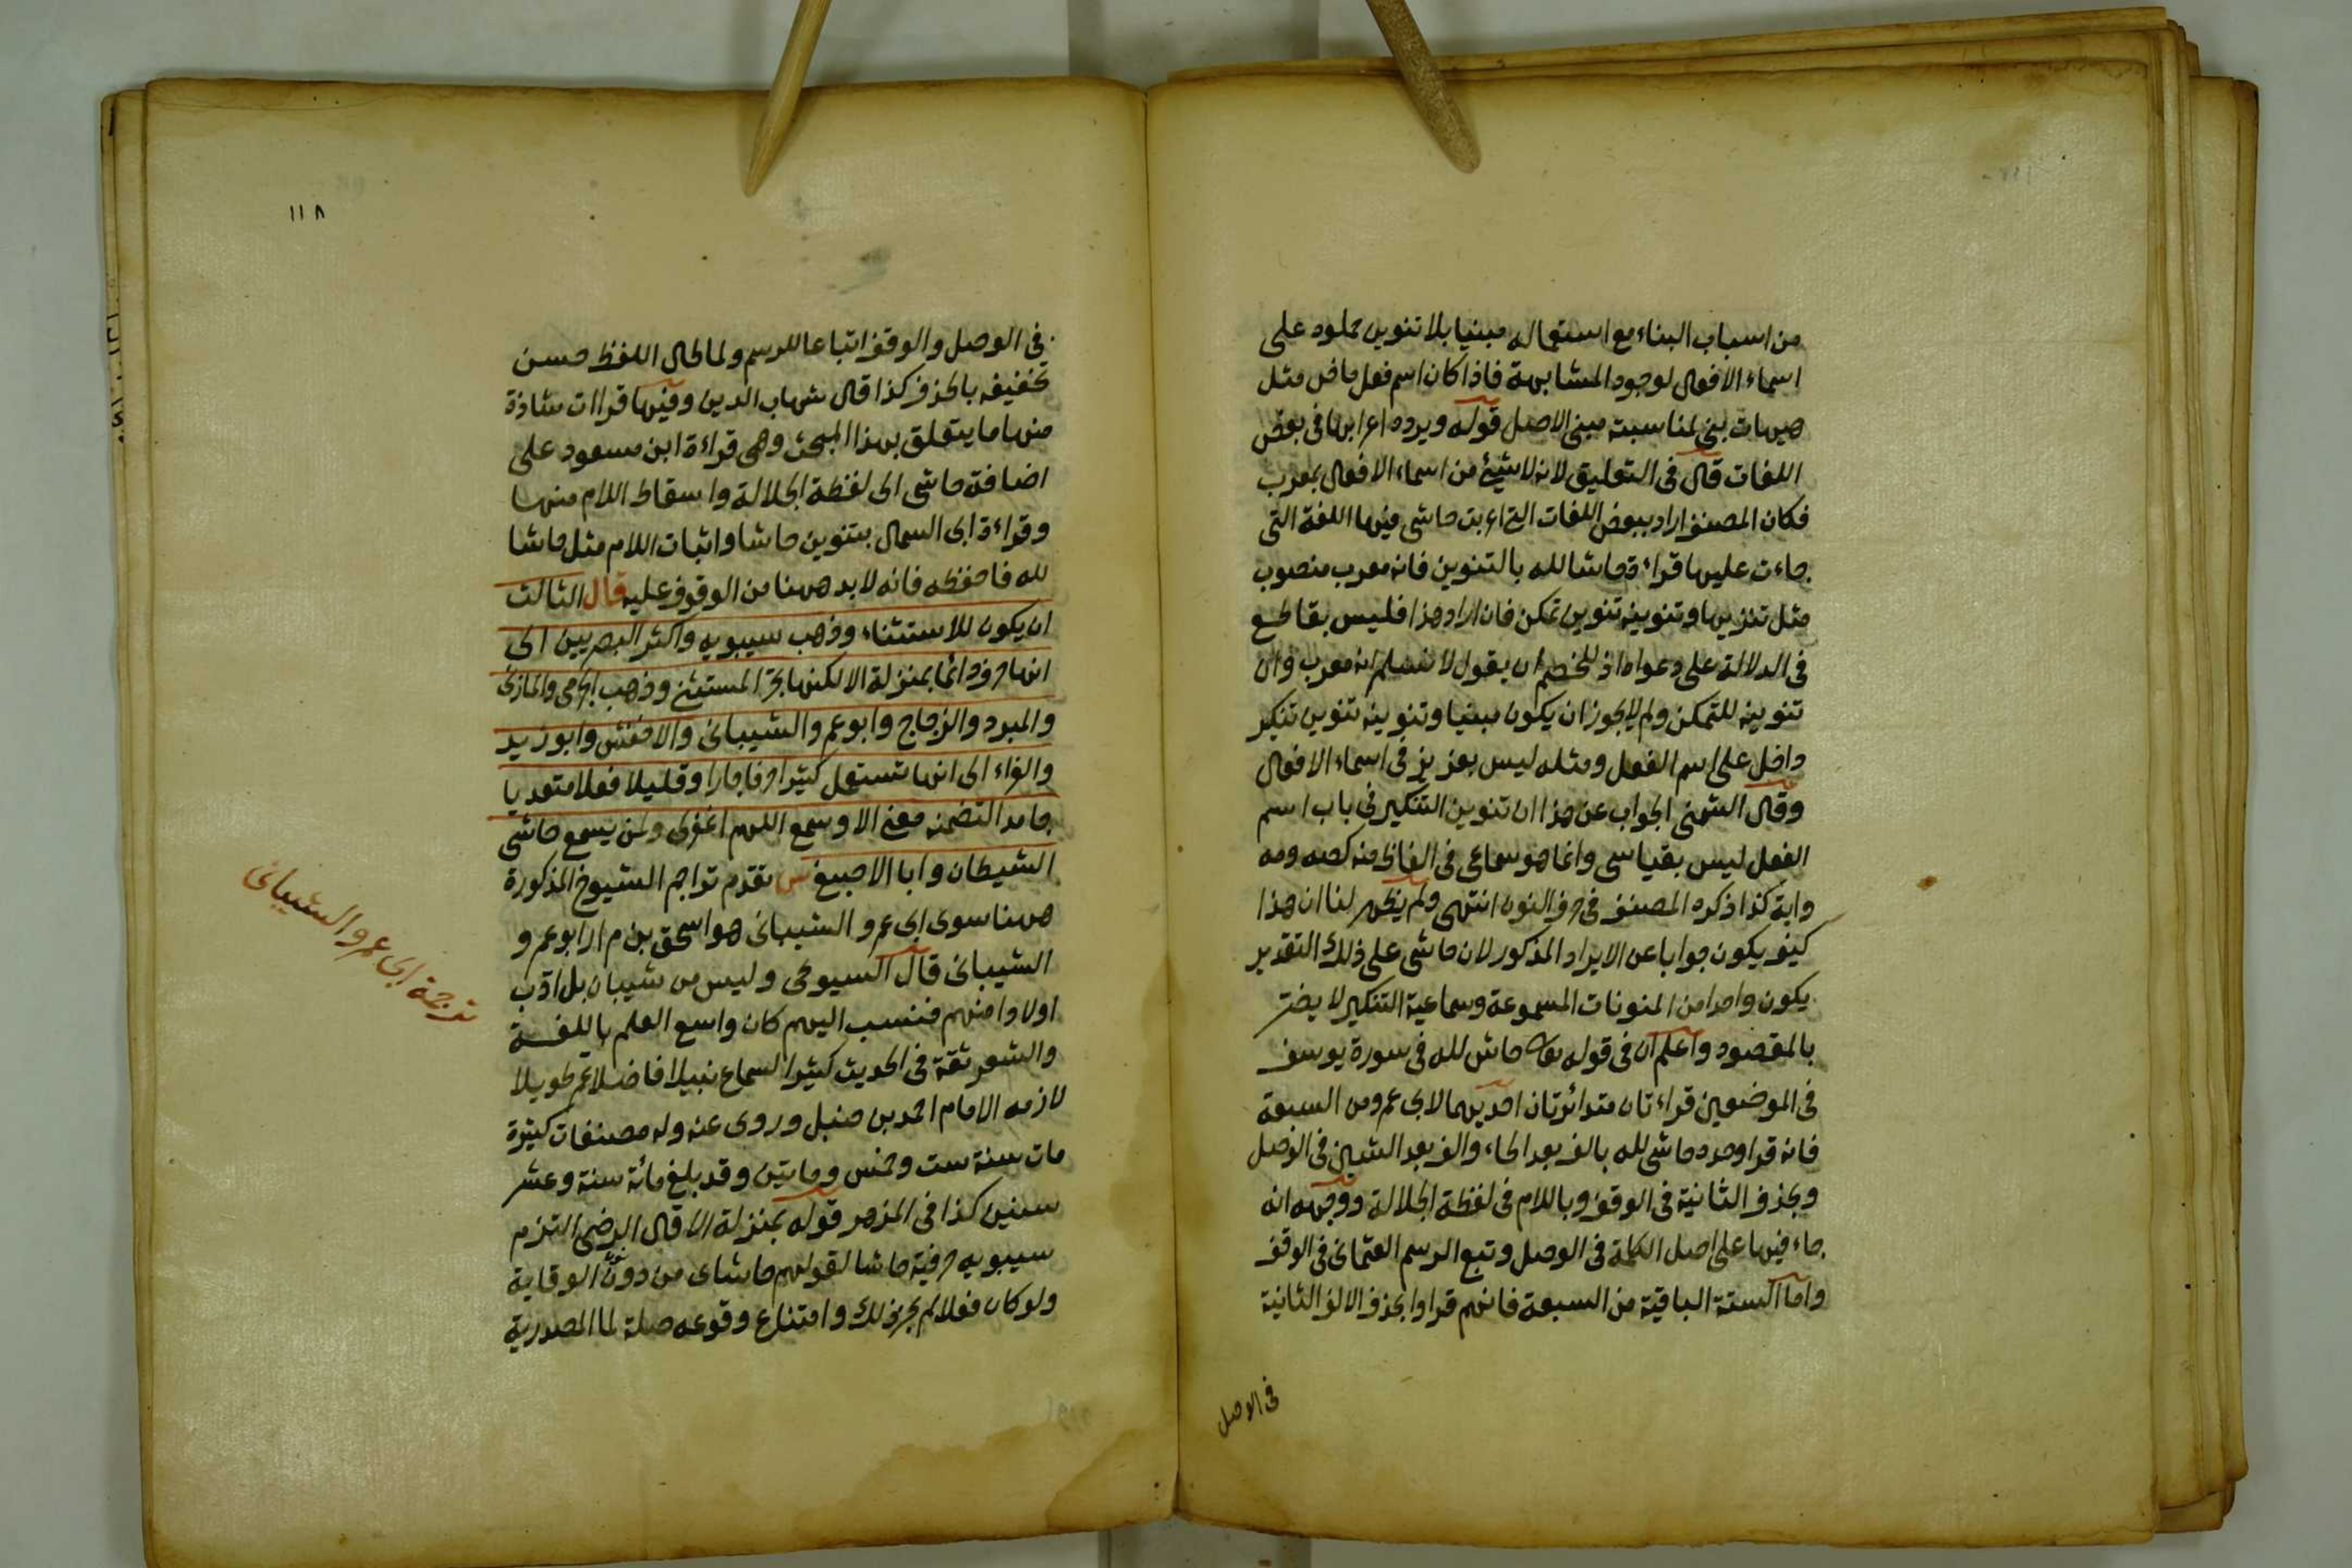 من اسباب البناء مع استعماله مبنيا بلا تنوين حملوه على
اسماء الافعال لوجود المشابهة فاذا كان اسم فعل ماض مثل
هيهات بني لمناسبته مبنى الاصل قوله ويرده اعرابها في بعض
اللغات قال في التعليق لانه لا شيئ من اسماء الافعال بمعرب
فكان المصنف اراد ببعض اللغات التى اعربت حاشى فيها اللغة التى
جاءت عليها قراءة حاشا لله بالتنوين فانه معرب منصوب
مثل تنزيها وتنوينه تنوين تمكن فان اراد هذا فليس بقاطع
في الدلالة على دعواه اذ للخصم ان يقول لا نسلم انه معرب وان
تنوينه للتمكن ولم لا يجوز ان يكون مبنيا وتنوينه تنوين تنكير
داخل على اسم الفعل ومثله ليس بعزيز في اسماء الافعال
وقال الشمني الجواب عن هذا ان تنوين التنكير في باب اسم
الفعل ليس بقياسى وانما هو سماعى في الفاظ منه كصه ومه
وايه كذا ذكره المصنف في حرف النون انتهى ولم يظهر لنا ان هذا
كيف يكون جوابا عن الايراد المذكور لان حاشى على ذلك التقدير
يكون واحدا من المنونات المسموعة وسماعية التنكير لا يضر
بالمقصود واعلم ان في قوله تعالى حاش لله في سورة يوسف
في الموضعين قراءتان متواترتان احديهما لابى عمرو من السبعة
فانه قرا وحده حاشى لله بالف بعد الحاء والف بعد الشين في الوصل
وبحذف الثانية في الوقف وباللام في لفظة الجلالة ووجهه انه
جاء فيها على اصل الكلمة في الوصل وتبع الرسم العثمانى في الوقف
واما الستة الباقية من السبعة فانهم قراوا بحذف الالف الثانية
في الوصل
١١٨
في الوصل والوقف اتباعا للرسم ولما طال اللفظ حسن
تخفيفه بالحذف كذا قال شهاب الدين وفيها قراات شاذة
منها ما يتعلق بهذا المبحث وهى قراءة ابن مسعود على
اضافة حاشى الى لفظة الجلالة واسقاط اللام منها
وقراءة ابى السمال بتنوين حاشا واثبات اللام مثل حاشا
لله فاحفظه فانه لا بد ههنا من الوقوف عليه قال الثالث
ان يكون للاستثناء وذهب سيبويه واكثر البصريين الى
انها حرف دائما بمنزلة الا لكنها تجر المستثنى وذهب الجرمى والمازنى
والمبرد والزجاج وابو عمرو الشيبانى والاخفش وابو زيد
والفراء الى انها تستعمل كثيرا حرفا جارا وقليلا فعلا متعديا
جامدا لتضمنه معنى الا وسمع اللهم اغفرلى ولمن يسمع حاشى
الشيطان وابا الاصبغ ش تقدم تراجم الشيوخ المذكورة
ههنا سوى ابى عمرو الشيبانى هو اسحق بن مرار ابو عمرو
الشيبانى قال السيوطى وليس من شيبان بل ادب
اولادا منهم فنسب اليهم كان واسع العلم باللغة
والشعر ثقة في الحديث كثير السماع نبيلا فاضلا عمر طويلا
لازمه الامام احمد بن حنبل وروى عنه وله مصنفات كثيرة
مات سنة ست وخمس ومايتين وقد بلغ مائة سنة وعشر
سنين كذا في المزهر قوله بمنزلة الا قال الرضى التزم
سيبويه حرفية حاشا لقولهم حاشاى من دون نون الوقاية
ولو كان فعلا لم يجز ذلك وامتناع وقوعه صلة لما المصدرية
ترجمة ابى عمرو الشيبانى